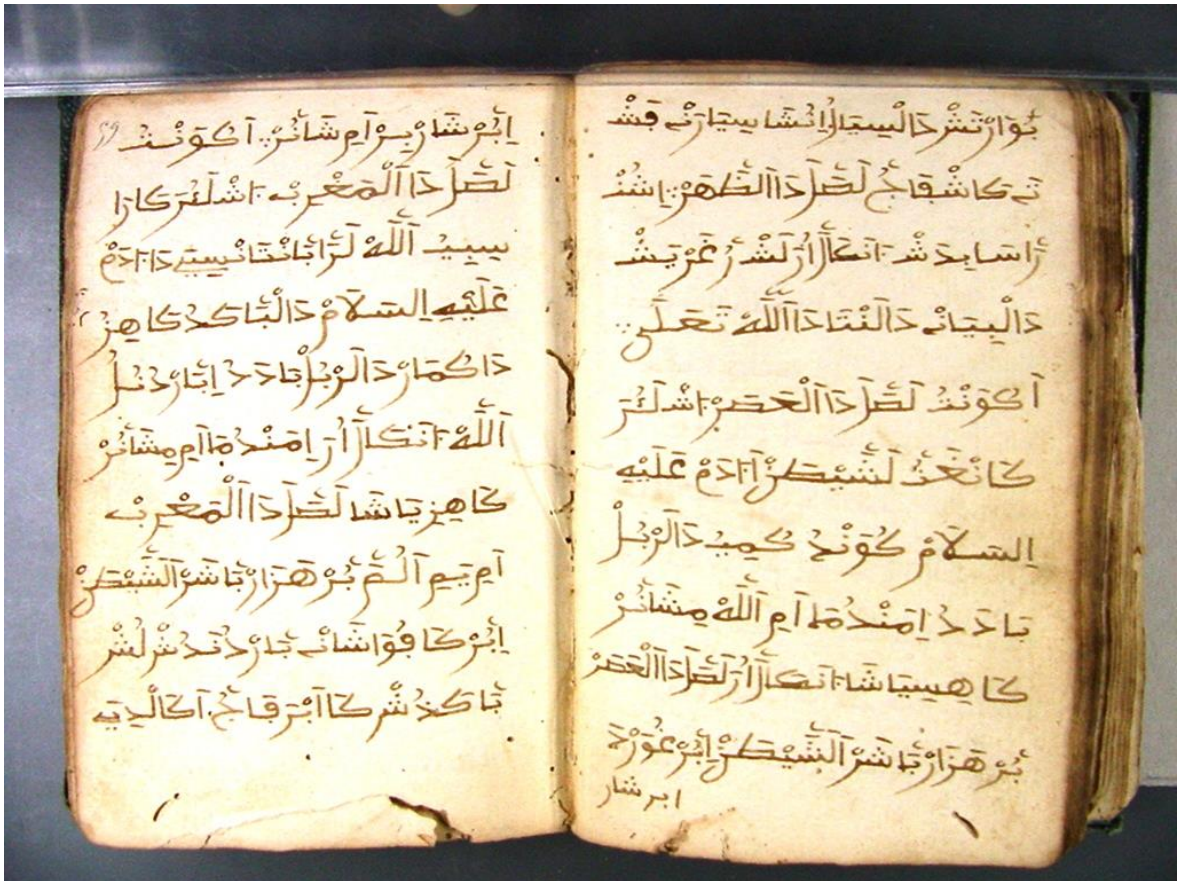 بُوَارْتَشْ دَالْسِيَالُ اِنُشَا سِيَارَنْ قَشْ
تَ كَاشْقَاجُ لَصَّلَ دَا اَلظُّهَرْ اِشُنْ
رَّاسَابِدَشْ اَنكَالَّ اُرَ لَشْ رُغَرْيَشْ
دَالْبِيَانْ دَالَنْتَا دَا اَللَّهْ تَعَلَى
اَكُوَنْتُ لَصَّلَ دَا اَلْعَصَرْ اَشْ لَئُرَ
كَانْغَنُّ لَشَّيْطَنْ اَ اَدَمْ عَلَيْهِ
اِلسَلَامْ كُوَنْدُ كُمِيُ دَالَرْبُلْ
بَادَدُ اِمَنْدُمَا اَمِ اَللَّهْ مِشَانُّرْ
كَا هِسِيَاشَا اَنكَالَّ اُرَ لَصَّلَ دَا اَلْعَصَرْ
بُرْ هَزَارْ بَّاشَرْ اَلشَّيْطَنْ اِبُرْ غُوَرْدَ
ابر شار
اِبُرْ شَارْبِرْ اَمِ شَانُّرْ اَكُوَنْتُ
لَصَّلَ دَا اَلْمَغْرِبْ اَشْ لَئُرَ كَارَا
سِبِيُ اَللَّهْ لَرَّابَّانْتَانْسِيَ دَا اَدَمْ
عَلَيْهِ اِلسَلَامْ دَالْبَّاكَدُ كَا هِزُ
دَا كُمَارْ دَالَرْبُلْ بَادَدُ اِبَّارْدُنُلُ
اَللَّهْ اَنكَالَّ اُرَ اِمَنْدُمَا اَمِ مِشَانُّرْ
كَا هِزِيَاشَا لَصَّلَ دَا اَلْمَغْرِبْ
اَمِ يَمِ اَلُمَّ بُرْ هَزَارْ بَّاشَرْ اَلشَّيْطَنْ
اِبُرْ كَا فُوَاشَانْ بَّارْدُنَدُشْ لُشْ
بَّاكَدُشْ كَا اَبْرَ قَاجُ اَكَالْدِيَ